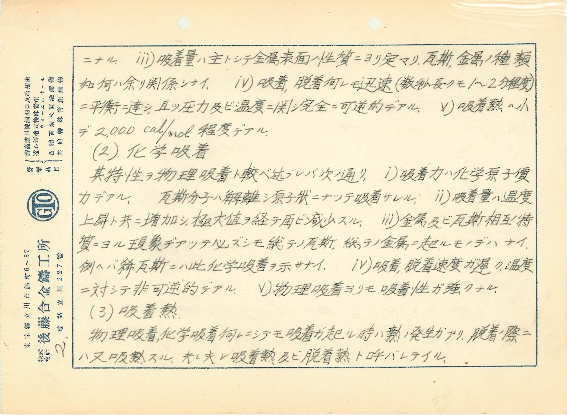 ニナル iii)吸着量ハ主トシテ金属表面ノ性質ニヨリ定マリ,瓦斯,金属ノ種類
如何ハ余リ関係シナイ. iv)吸着,脱着何レモ迅速(数秒長クモ1〜2分程度)
ニ平衡ニ達シ,且ツ圧力及ビ温度ニ関シ完全ニ可逆的デアル. v)吸着熱ハ小
デ 2,000 cal/mol 程度デアル.
(2) 化学吸着
其特性ヲ物理吸着ト較ベ述ブレバ次ノ通リ. i)吸着力ハ化学原子価
力デアル. 瓦斯分子ハ解離シ原子状ニナツテ吸着サレル. ii)吸着量ハ温度
上昇ト共ニ増加シ,極大値ヲ経テ再ビ減少スル. iii)金属及ビ瓦斯相互ノ特
質ニヨル現象デアツテ必ズシモ総テノ瓦斯,総テノ金属ニ起ルモノデハナイ.
例ヘバ稀瓦斯ニハ此化学吸着ヲ示サナイ. iv)吸着,脱着速度ガ遅ク,温度
ニ対シテ非可逆的デアル. v)物理吸着ヨリモ吸着性ガ強クナル.
(3) 吸着熱
物理吸着,化学吸着何レニシテモ吸着ガ起ル時ハ熱ノ発生ガアリ,脱着ノ際ニ
ハ又吸熱スル. 夫々夫レ吸着熱及ビ脱着熱ト呼バレテイル.
GTO
後藤合金鑄工所
2.